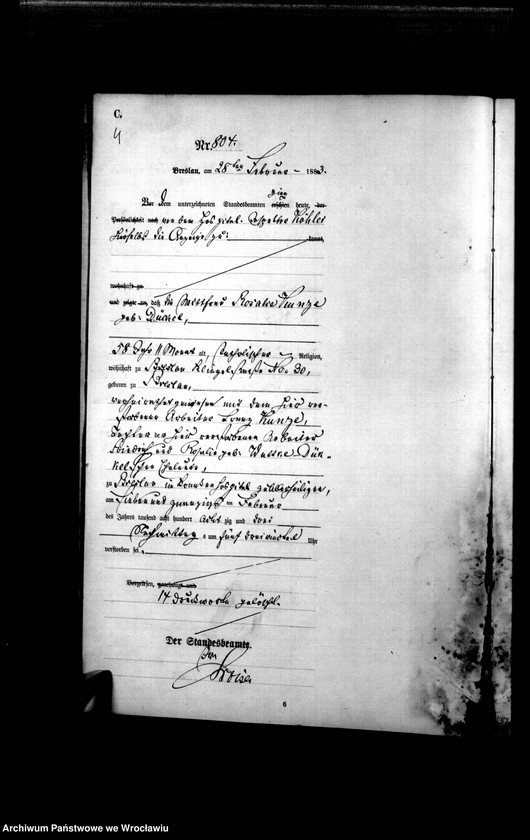 C.
4
Nr. 804.
Breslau, am 28ten Februar 1883.
Vor dem unterzeichneten Standesbeamten erschien heute, der
ging
Persönlichkeit nach von dem Hospital-Inspektor Köhler
hierselbst die Anzeige zu: kannt,
wohnhaft zu
und zeigte an, daß die Wittfrau Rosalie Kunze
geb: Dünkel,
58 Jahr 11 Monat alt, katholischer Religion,
wohnhaft zu Breslau Klingelstraße No. 20,
geboren zu Breslau,
verheirathet gewesen mit dem hier ver-
storbenen Arbeiter Kunze,
Tochter der hier verstorbenen Arbeiter
Friedrich und Rosalie geb: Dün-
kel'schen Eheleute,
zu Breslau im Krankenhospital zu Allerheiligen,
am sieben und zwanzigsten Februar
des Jahres tausend acht hundert achtzig und drei
Nachmittags um fünf dreiviertel Uhr
verstorben sei.
Vorgelesen, genehmigt und
14 Druckworte gelöscht.
Der Standesbeamte.
6
Archiwum Państwowe we Wrocławiu